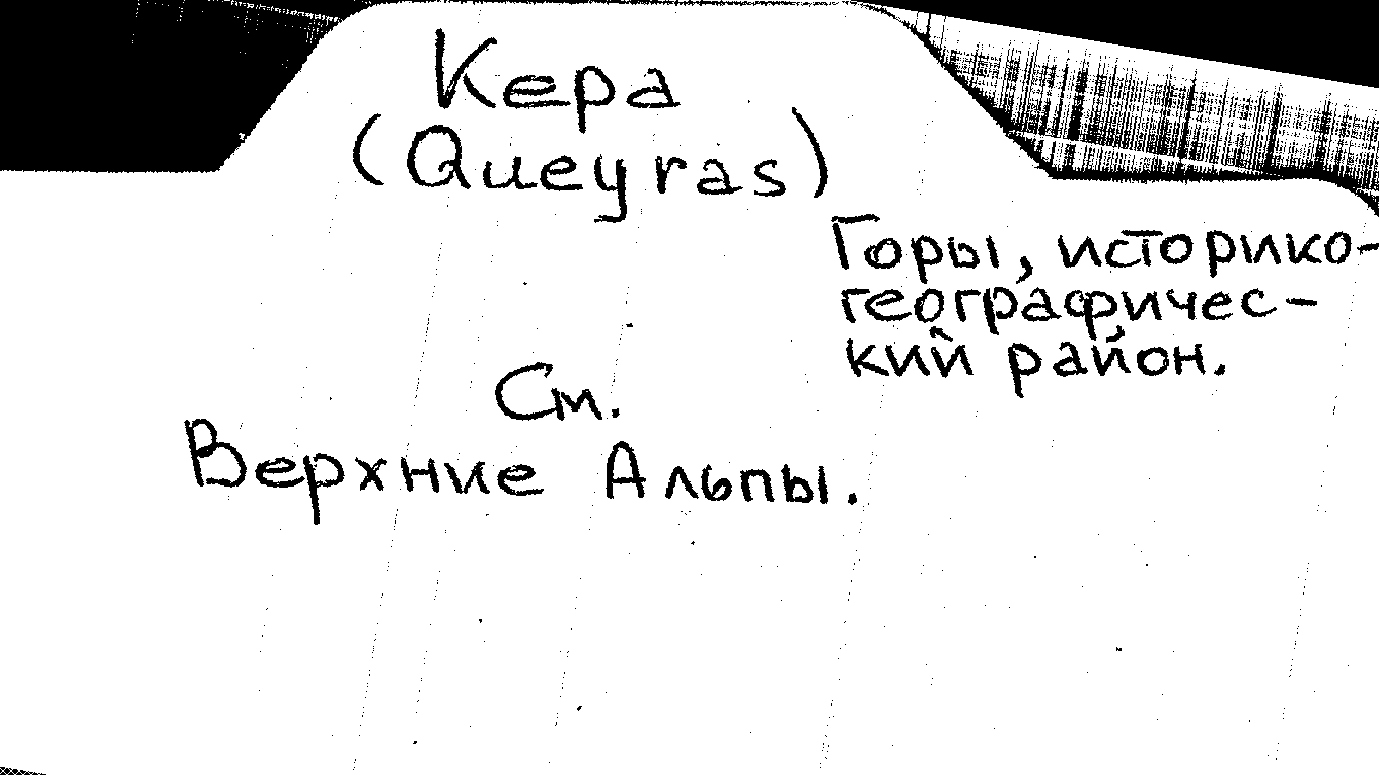 Кера
(Queyras)
Горы, историко-
географичес-
кий район.
См.
Верхние Альпы.